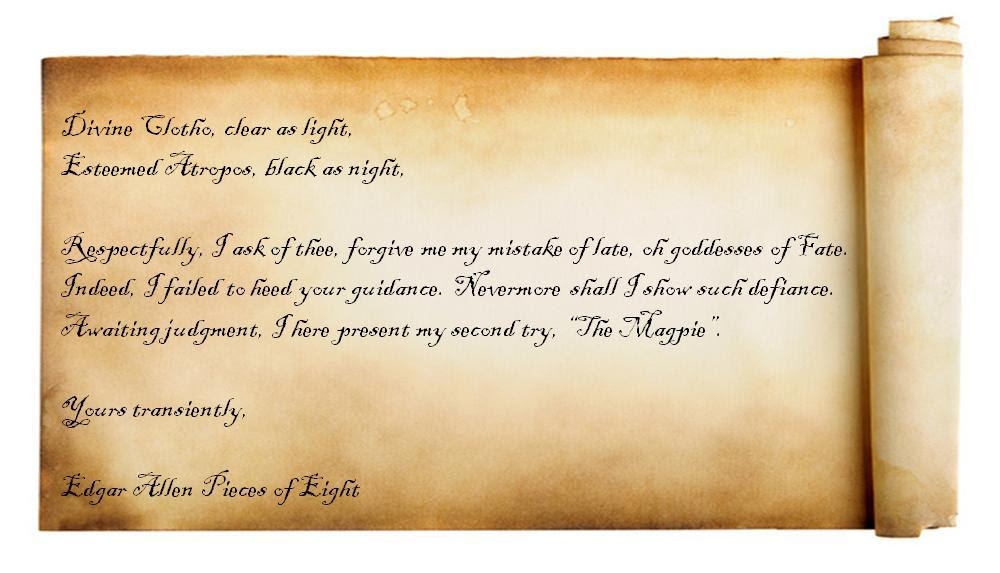 Divine Clotho, clear as light,
Esteemed Atropos, black as night,
Respectfully, I ask of thee, forgive me my mistake of late, oh goddesses of Fate.
Indeed, I failed to heed your guidance. Nevermore shall I show such defiance.
Awaiting judgment, I here present my second try, “The Magpie”.
Yours transiently,
Edgar Allen Pieces of Eight